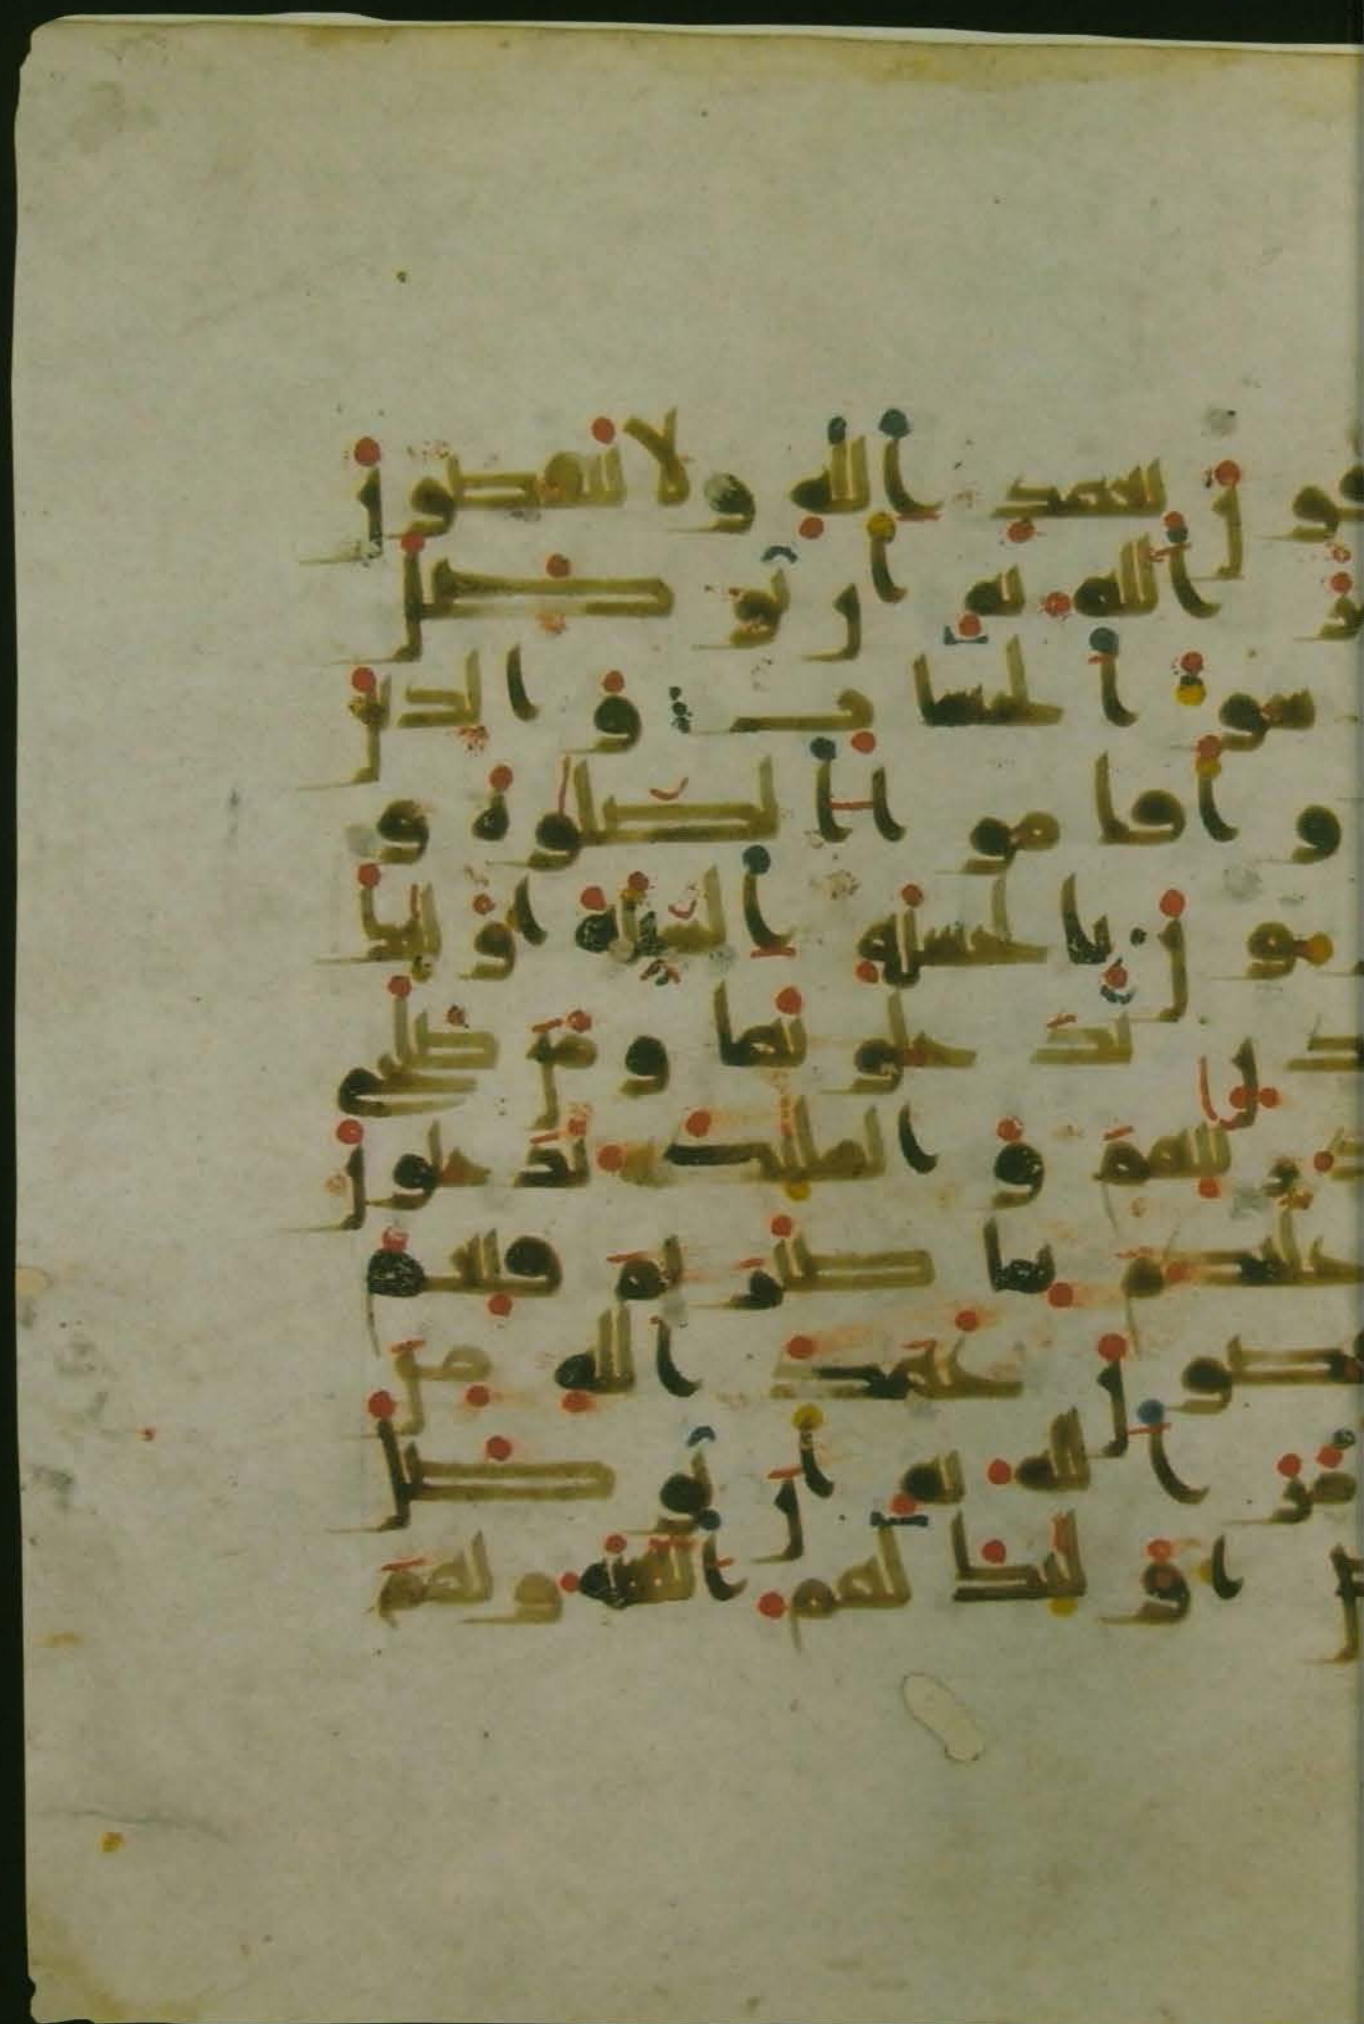 فون بعهد الله ولا ينقضون
الله به ان يوصل
سو الحساب والذين
واقاموا الصلوة و
ون بالحسنة السيئة اولئك
يدخلونها ومن صلح
يتهم والملئكة يدخلون
عليكم بما صبرتم فنعم
قضون عهد الله من
الله به ان يوصل
اولئك لهم اللعنة ولهم